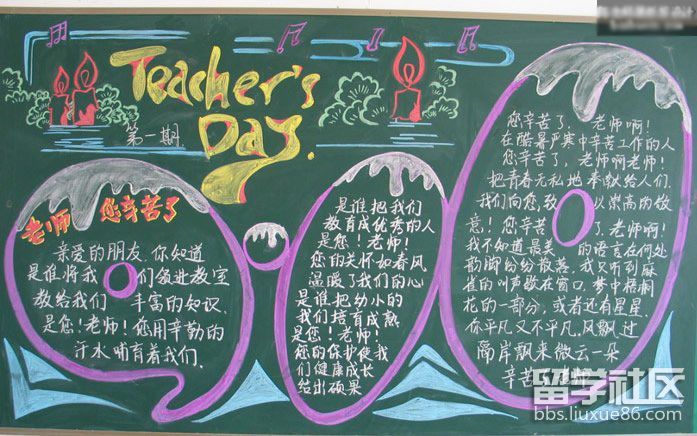 Teacher's
Day.
第一期
老师 您辛苦了
亲爱的朋友、你知道
是谁将我们领进教室
教给我们丰富的知识.
是您!老师!您用辛勤的
汗水哺育着我们.
是谁把我们
教育成优秀的人
是您!老师!
您的关怀如春风
温暖了我们的心
是谁把幼小的
我们培育成熟
是您!老师!
您的保护使我
们健康成长
结出硕果
您辛苦了,老师啊!
在酷暑严寒中辛苦工作的人
您辛苦了,老师啊老师!
把青春无私地奉献给人们.
我们向您,致以崇高的敬
意!您辛苦了老师啊!
我不知道最美的语言在何处
韵脚纷纷散落、我只听到麻
雀的叫声歇在窗口,梦中梧桐
花的一部分,或者还有星星.
你平凡又不平凡,风飘过
隔岸飘来微云一朵
辛苦了
留学社区
bbs.liuxue86.com